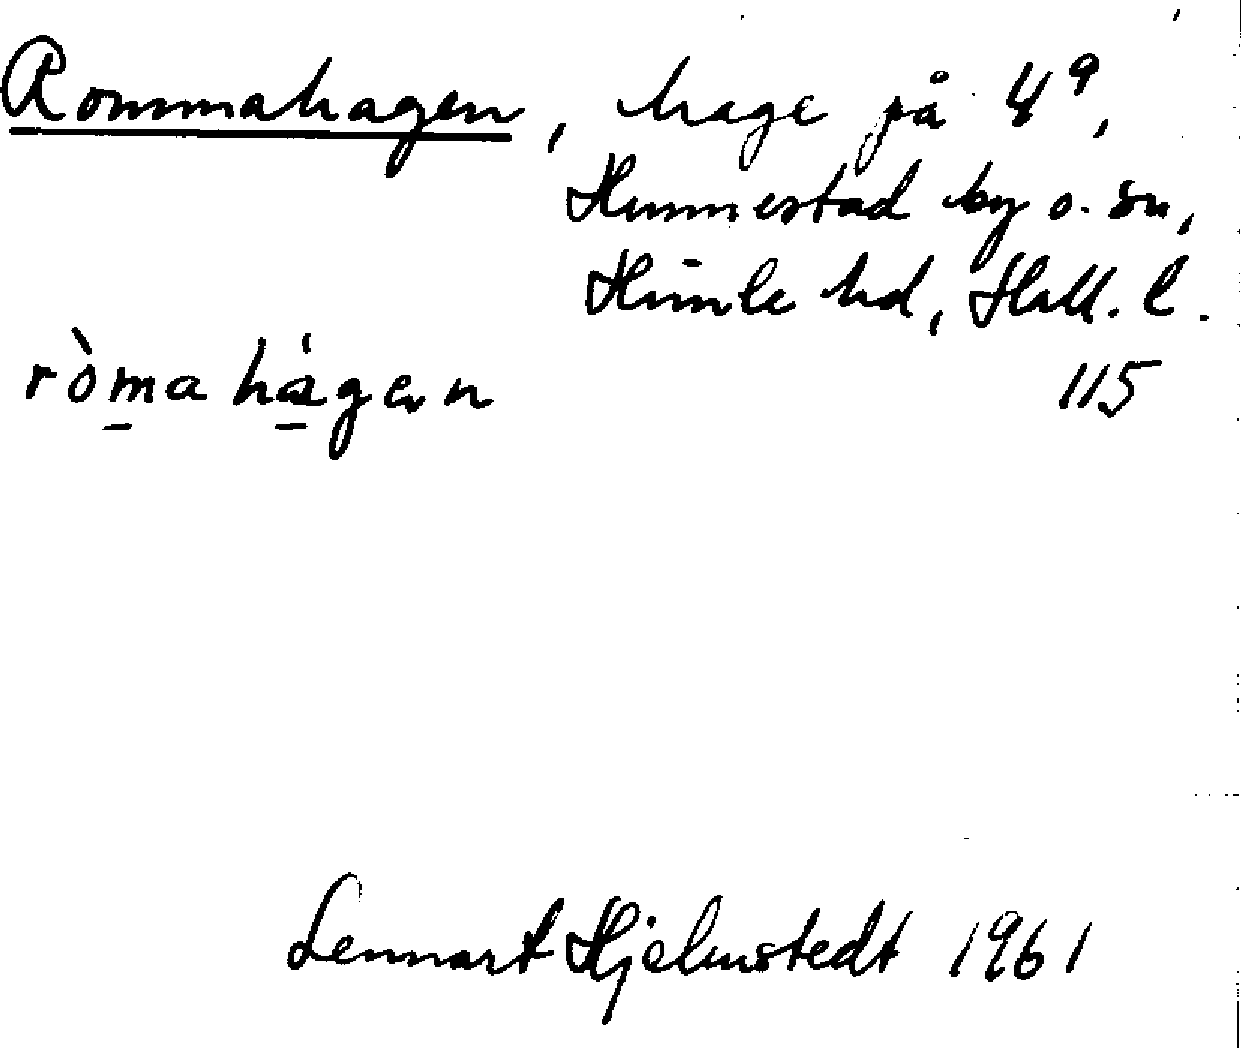 Rommahagen, hage på 4⁹,
Hunnestad by o. sn,
Himle hd, Hall. l.
ròma hágen
115
Lennart Hjelmstedt 1961